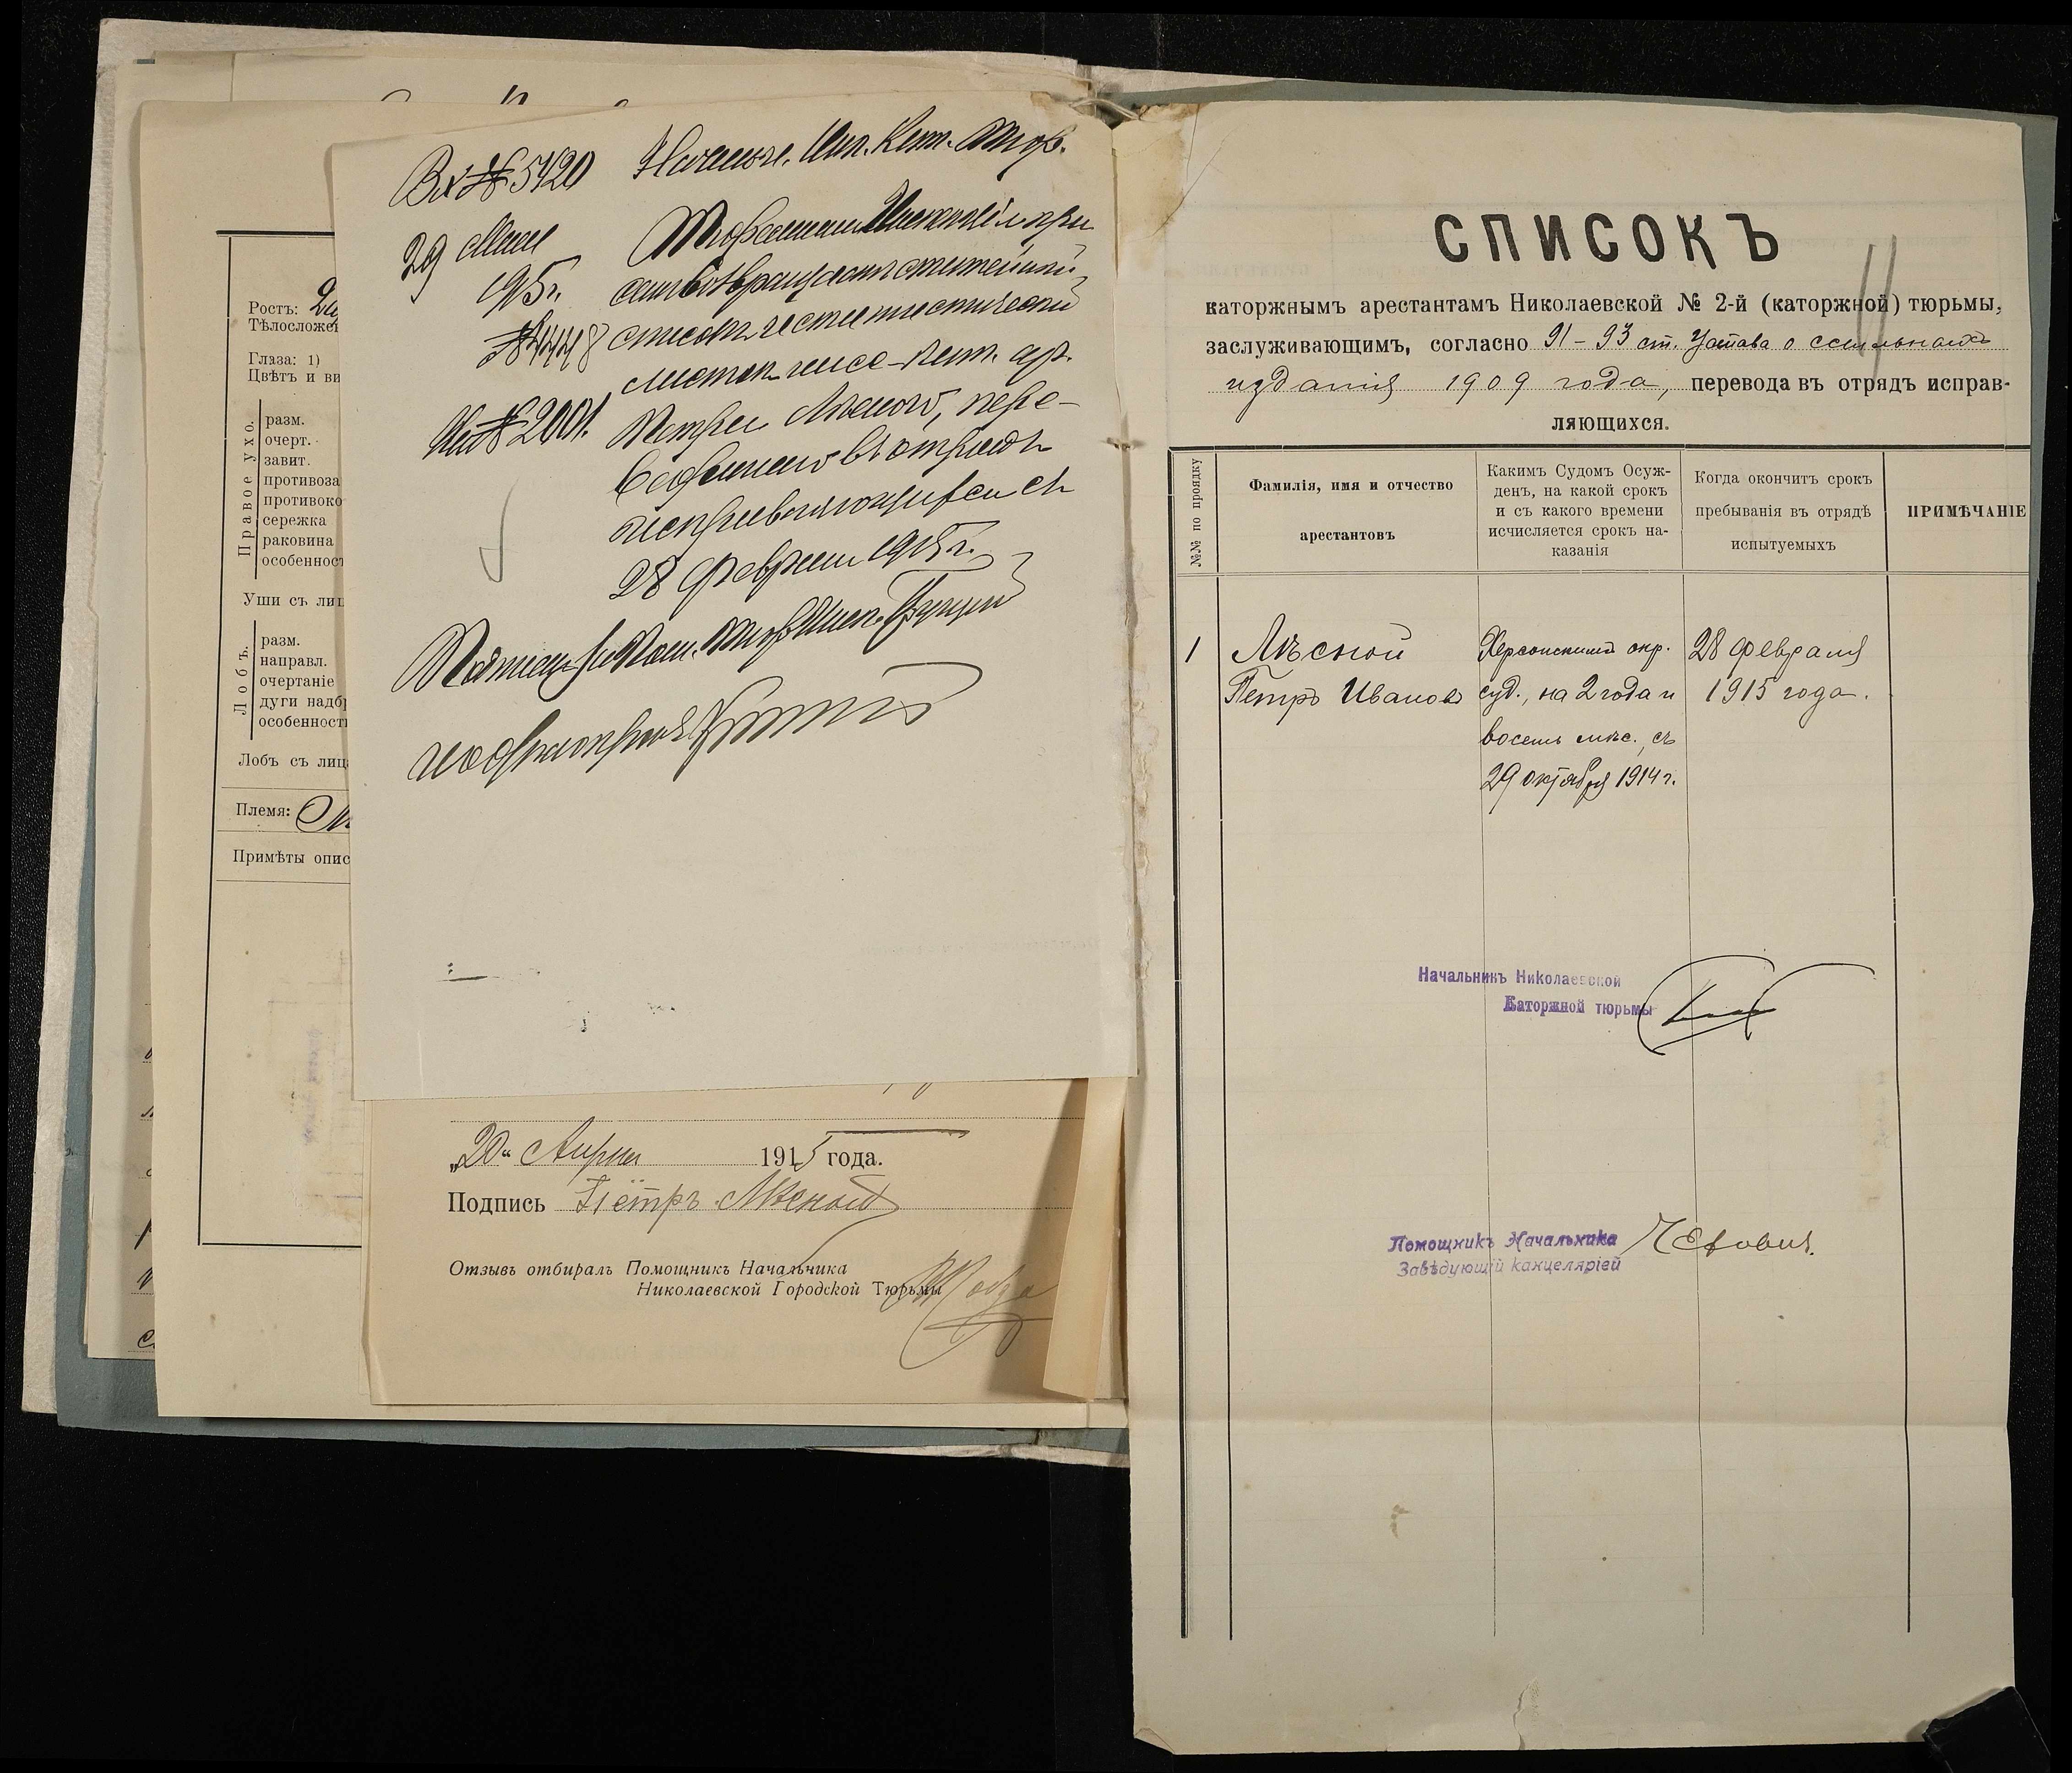 Ростъ:
Тѣлосложе
Глаза: 1)
Цвѣтъ и ви
Правое ухо.
разм.
очерт.
завит.
противоза
противоко
сережка
раковина
особенност
Уши съ лиц
Лобъ.
разм.
направл.
очертаніе
дуги надбр
особенност
Лобъ съ лиц
Племя:
Примѣты опис
Вх № 5420
29 Мая
1915 г.
№ 4448
№ 2001.
Начальн. Ник. Кат. Тюр.
Тюремная Инспекція при
семъ возвращаетъ статейный
списокъ и статистическій
листокъ ссыл-кат. ар.
Петра Лѣсного, пере-
веденнаго въ отрядъ
исправляющихся съ
28 Февраля 1915 г.
Подписалъ Пом. Тюр. Инсп.
„20“ Апрѣля 1915 года.
Подпись Пётръ Лѣсной
Отзывъ отбиралъ Помощникъ Начальчика
Николаевской Городской Тюрьмы
СПИСОКЪ
каторжнымъ арестантамъ Николаевской № 2-й (каторжной) тюрьмы,
заслуживающимъ, согласно 91 – 93 ст. Устава о ссыльныхъ
изданія 1909 года, перевода въ отрядъ исправ-
ляющихся.
№№ по проядку
Фамилія, имя и отчество
арестантовъ
Какимъ Судомъ Осуж-
денъ, на какой срокъ
и съ какого времени
исчисляется срокъ на-
казанія
Когда окончитъ срокъ
пребыванія въ отрядѣ
испытуемыхъ
ПРИМѢЧАНІЕ
1
Лѣсной
Петръ Ивановъ
Херсонскимъ окр.
суд., на 2 года и
восемь мѣс., съ
29 октября 1914 г.
28 февраля
1915 года.
Начальникъ Николаевской
Каторжной тюрьмы
Помощникъ Начальника
Завѣдующій канцеляріей